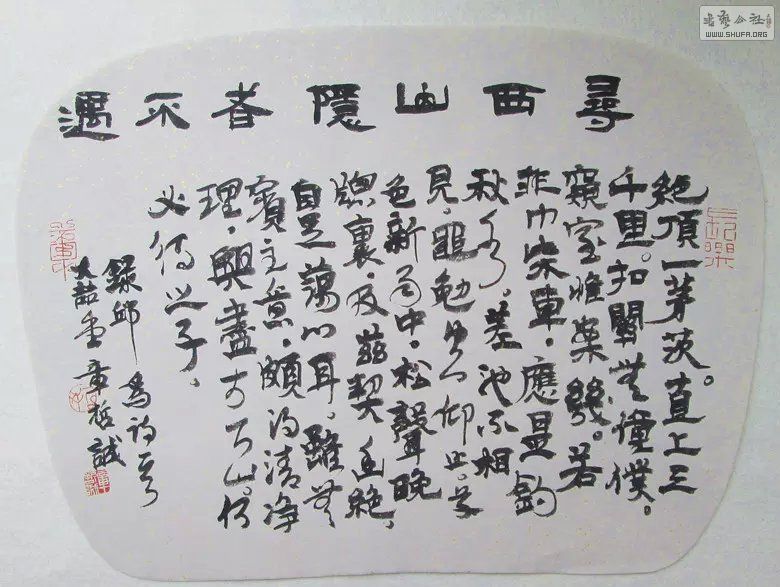 尋西山隱者不遇
絶頂一茅茨。直上三
千里。扣關無僮僕。
窺室惟案幾。若
非巾柴車，應是釣
秋水。差池不相
見，黽勉空仰止。草
色新雨中，松聲晚
牕裏，及茲契幽絶，
自足蕩心耳。雖無
賓主意，頗得清净
理，興盡方下山。何
必待之子。
錄邱為詩一首
大喆堂章哲誠
書藝公社
WWW.SHUFA.ORG